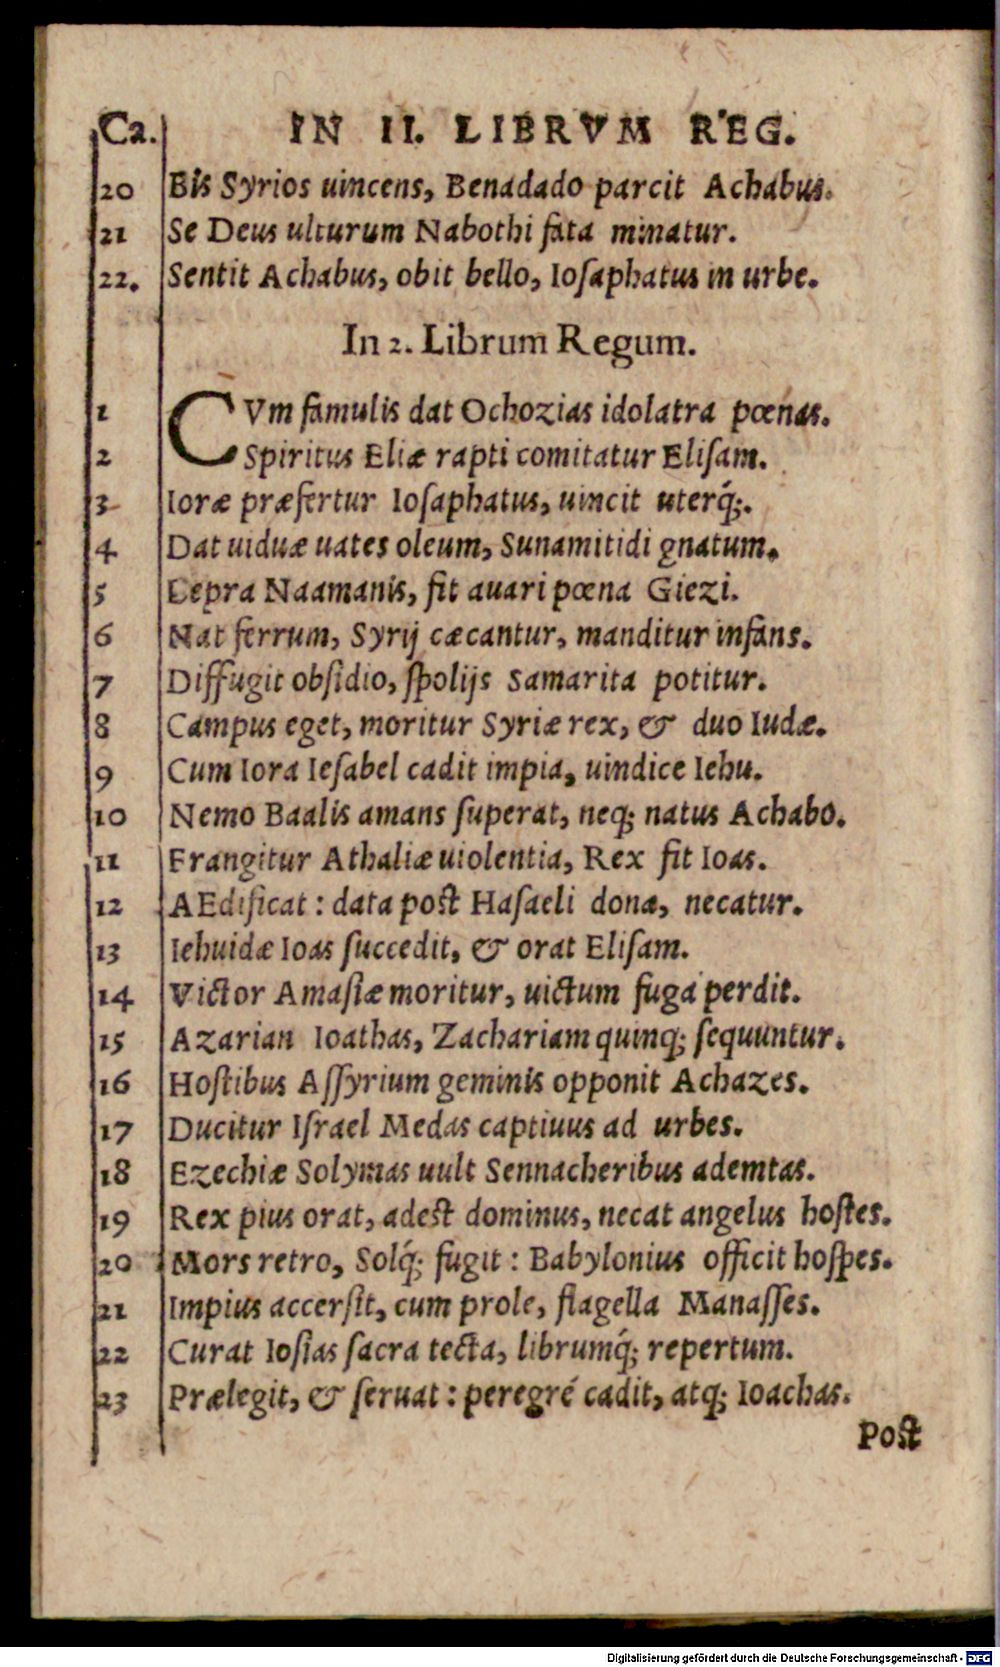 Ca. IN II. LIBRVM REG.
20 Bis Syrios uincens, Benadado parcit Achabus.
21 Se Deus ulturum Nabothi fata minatur.
22. Sentit Achabus, obit bello, Iosaphatus in urbe.
In 2. Librum Regum.
1 CVm famulis dat Ochozias idolatra pœnas.
2 Spiritus Eliæ rapti comitatur Elisam.
3 Ioræ præfertur Iosaphatus, uincit uterq́;.
4 Dat uiduæ uates oleum, Sunamitidi gnatum.
5 Lepra Naamanis, fit auari pœna Giezi.
6 Nat ferrum, Syrij cæcantur, manditur infans.
7 Diffugit obsidio, spolijs Samarita potitur.
8 Campus eget, moritur Syriæ rex, & duo Iudæ.
9 Cum Iora Iesabel cadit impia, uindice Iehu.
10 Nemo Baalis amans superat, neq; natus Achabo.
11 Frangitur Athaliæ uiolentia, Rex fit Ioas.
12 AEdificat : data post Hasaeli dona, necatur.
13 Iehuidæ Ioas succedit, & orat Elisam.
14 Victor Amasiæ moritur, uictum fuga perdit.
15 Azarian Ioathas, Zachariam quinq; sequuntur.
16 Hostibus Assyrium geminis opponit Achazes.
17 Ducitur Israel Medas captiuus ad urbes.
18 Ezechiæ Solymas uult Sennacheribus ademtas.
19 Rex pius orat, adest dominus, necat angelus hostes.
20 Mors retro, Solq́; fugit : Babylonius officit hospes.
21 Impius accersit, cum prole, flagella Manasses.
22 Curat Iosias sacra tecta, librumq́; repertum.
23 Prælegit, & seruat : peregré cadit, atq; Ioachas.
Post
Digitalisierung gefördert durch die Deutsche Forschungsgemeinschaft - DFG